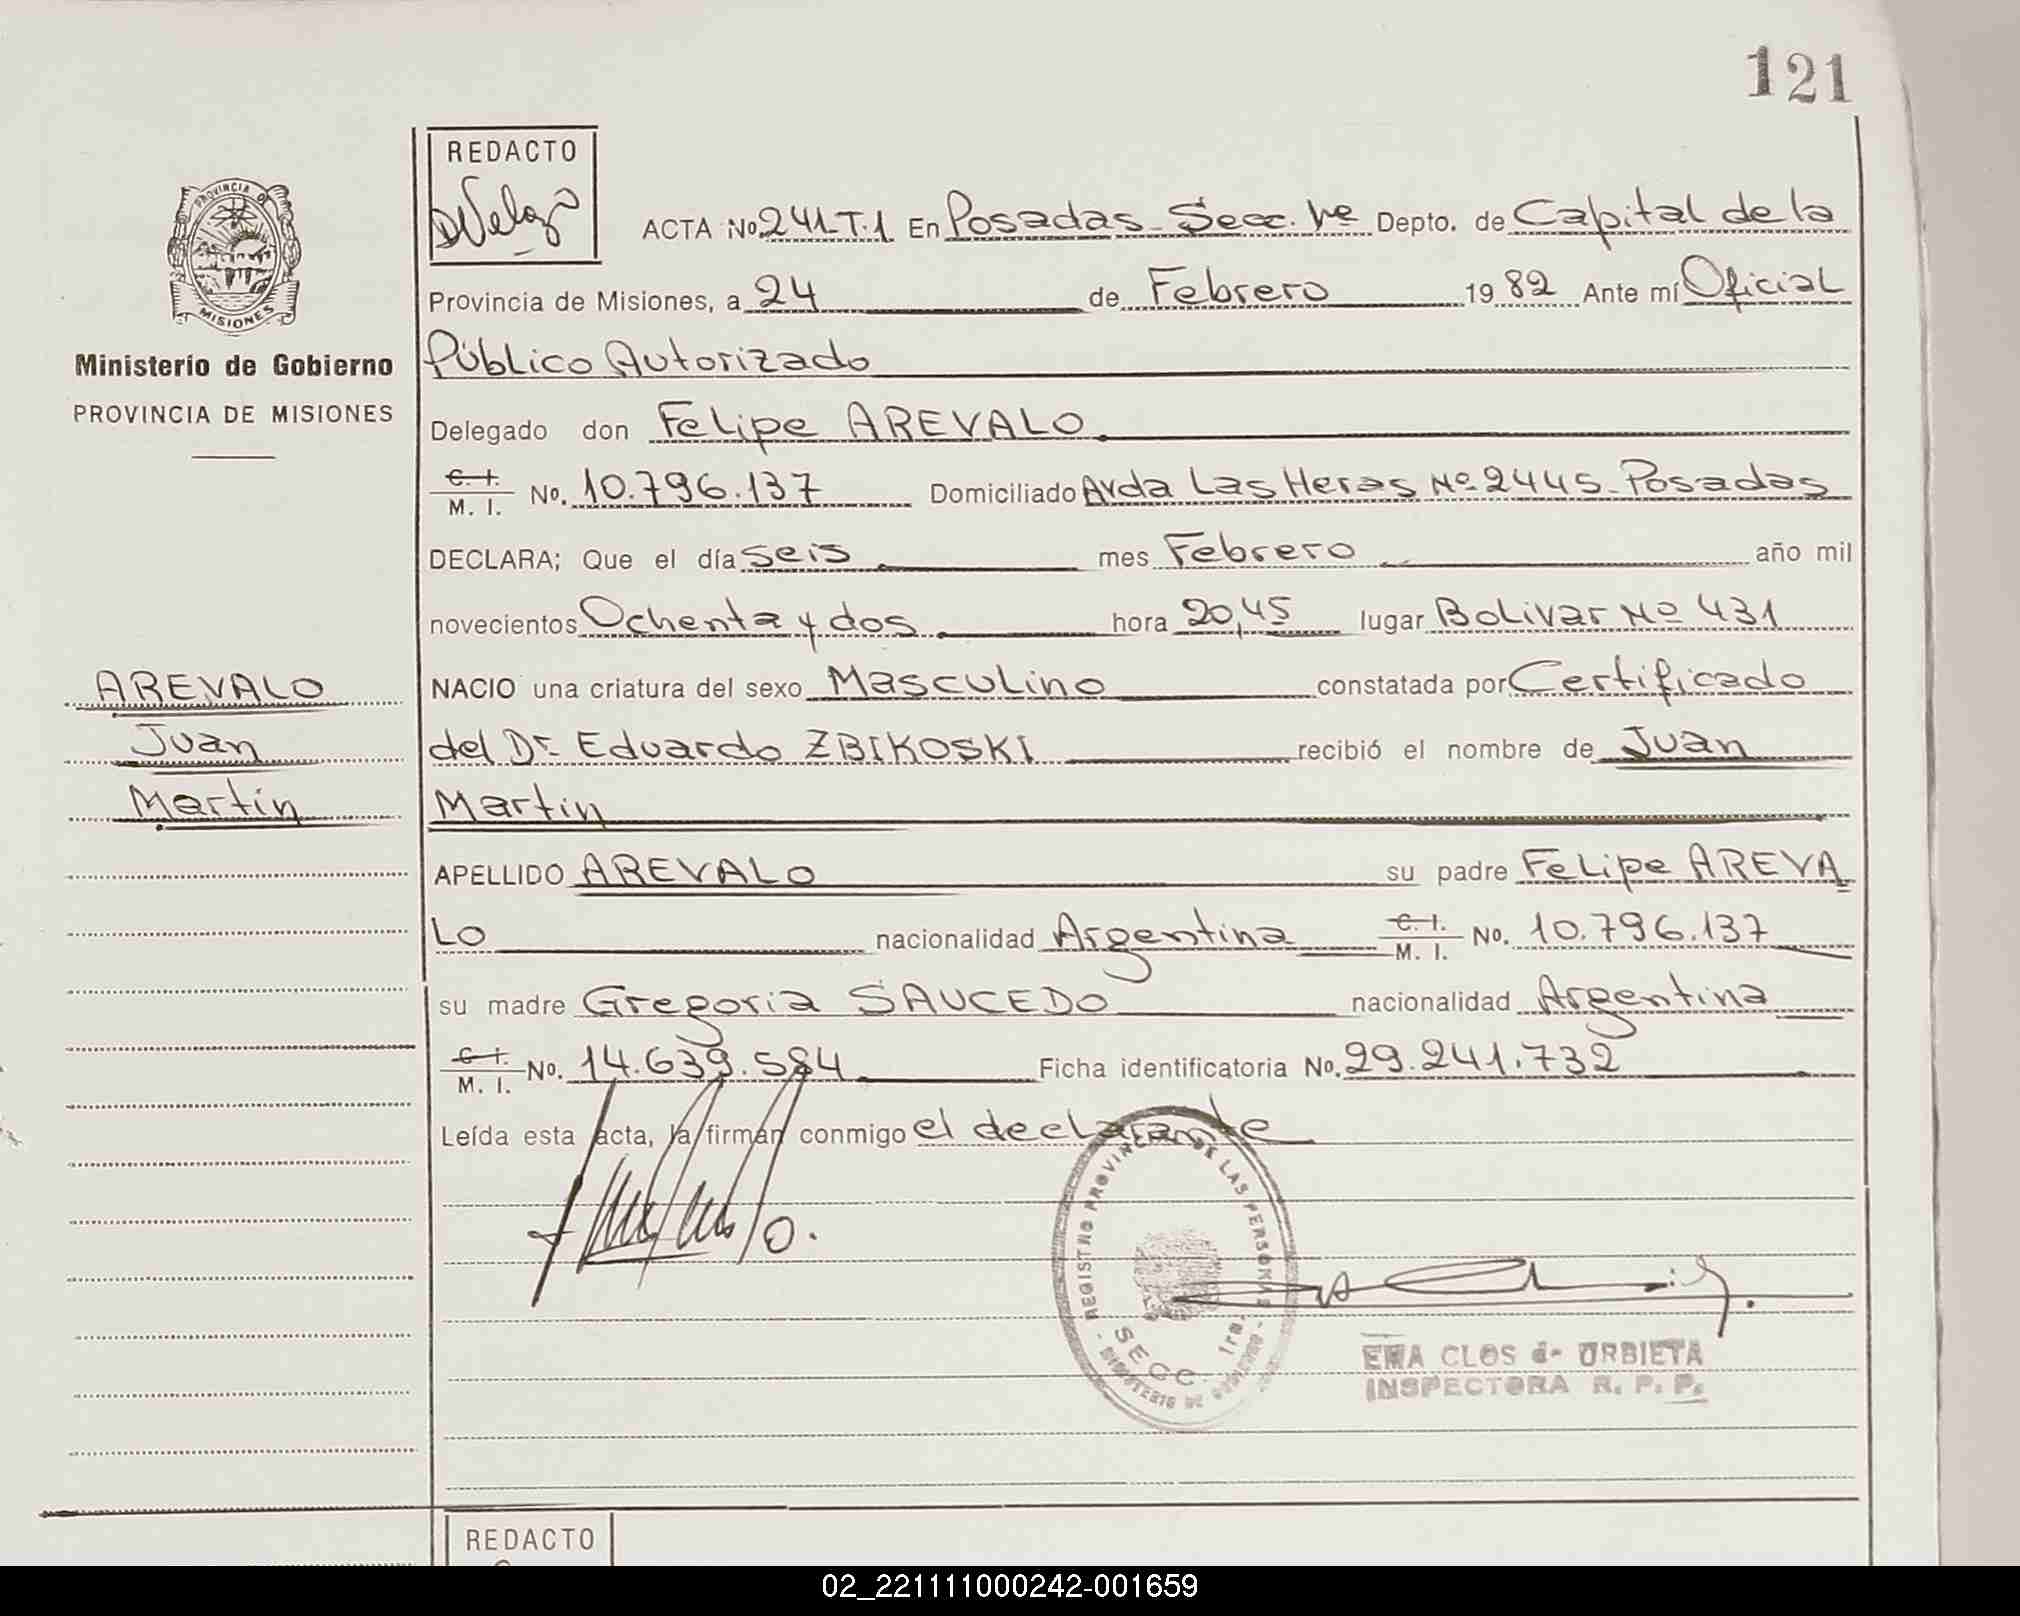 121
REDACTO
ACTA No. 241 T.1 En Posadas - Secc. 1ra Depto. de Capital de la
Provincia de Misiones, a 24 de Febrero 1982 Ante mí Oficial
Público Autorizado
Delegado don Felipe AREVALO
C. I. M. I. No. 10.796.137 Domiciliado Avda Las Heras Nº 2445 - Posadas
DECLARA; Que el día seis mes Febrero año mil
novecientos Ochenta y dos hora 20,45 lugar Bolivar Nº 431
NACIO una criatura del sexo Masculino constatada por Certificado
del Dr. Eduardo ZBIKOSKI recibió el nombre de Juan
Martin
APELLIDO AREVALO su padre Felipe AREVA
LO nacionalidad Argentina C. I. M. I. No. 10.796.137
su madre Gregoria SAUCEDO nacionalidad Argentina
C. I. M. I. No. 14.639.584 Ficha identificatoria No. 29.241.732
Leída esta acta, la firman conmigo el declarante
PROVINCIA DE
MISIONES
Ministerio de Gobierno
PROVINCIA DE MISIONES
AREVALO
Juan
Martín
REGISTRO PROVINCIAL DE LAS PERSONAS
SECC. 1ra.
MINISTERIO DE GOBIERNO
EMA CLOS de URBIETA
INSPECTORA R. P. P.
REDACTO
02_221111000242-001659